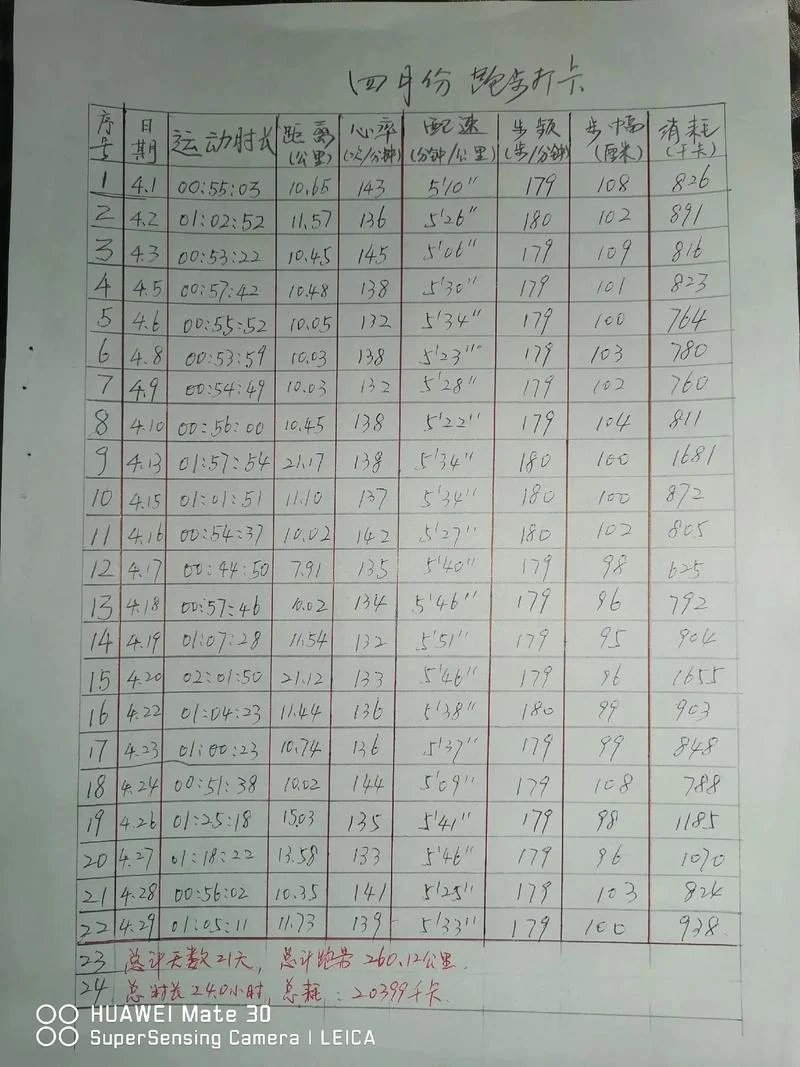 四月份 跑步打卡
序号 日期 运动时长 距离(公里) 心率(次/分钟) 配速(分钟/公里) 步频(步/分钟) 步幅(厘米) 消耗(千卡)
1 4.1 00:55:03 10.65 143 5'10" 179 108 826
2 4.2 01:02:52 11.57 136 5'26" 180 102 891
3 4.3 00:53:22 10.45 145 5'06" 179 109 816
4 4.5 00:57:42 10.48 138 5'30" 179 101 823
5 4.6 00:55:52 10.05 132 5'34" 179 100 764
6 4.8 00:53:59 10.03 138 5'23" 179 103 780
7 4.9 00:54:49 10.03 132 5'28" 179 102 760
8 4.10 00:56:00 10.45 138 5'22" 179 104 811
9 4.13 01:57:54 21.17 138 5'34" 180 100 1681
10 4.15 01:01:51 11.10 137 5'34" 180 100 872
11 4.16 00:54:37 10.02 142 5'27" 180 102 805
12 4.17 00:44:50 7.91 135 5'40" 179 98 625
13 4.18 00:57:46 10.02 134 5'46" 179 96 792
14 4.19 01:07:28 11.54 132 5'51" 179 95 904
15 4.20 02:01:50 21.12 133 5'46" 179 96 1655
16 4.22 01:04:23 11.44 136 5'38" 180 99 903
17 4.23 01:00:23 10.74 136 5'37" 179 99 848
18 4.24 00:51:38 10.02 144 5'09" 179 108 788
19 4.26 01:25:18 15.03 135 5'41" 179 98 1185
20 4.27 01:18:22 13.58 133 5'46" 179 96 1070
21 4.28 00:56:02 10.35 141 5'25" 179 103 824
22 4.29 01:05:11 11.73 139 5'33" 179 100 938
23 总计天数21天, 总计跑量 260.12公里.
24 总时长 24.0小时, 总耗: 20399千卡.
HUAWEI Mate 30
SuperSensing Camera | LEICA